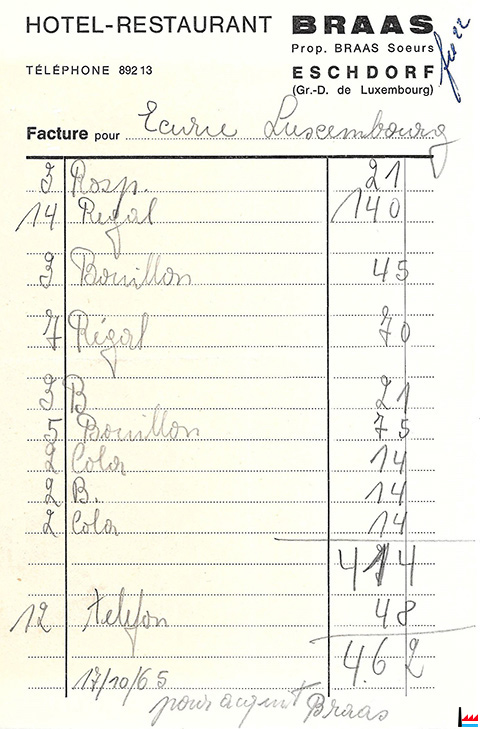 HOTEL-RESTAURANT BRAAS
Prop. BRAAS Soeurs
TÉLÉPHONE 892 13 ESCHDORF
(Gr.-D. de Luxembourg)
Facture pour Ecurie Luxembourg
3 Rosp. 21
14 Regal 140
3 Bouillon 45
7 Régal 70
3 B 21
5 Bouillon 75
2 Cola 14
2 B. 14
2 Cola 14
414
12 telefon 48
462
17/10/65
pour acquit Braas